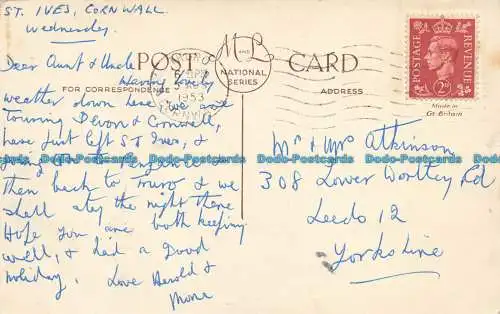 ST. IVES, CORNWALL
Wednesday
Dear Aunt & Uncle
Having lovely
weather down here we are
touring Devon & Cornwall,
have just left ST Ives, &
going to
then back to Truro & we
shall stay the night there
Hope you are both keeping
well, & had a good
holiday, Love Harold &
Mona
POST CARD
M AND L
NATIONAL
SERIES
FOR CORRESPONDENCE
ADDRESS
1953
POSTAGE
REVENUE
2D
Made in
Gt. Britain
Mr & Mrs Atkinson
308 Lower Wortley Rd
Leeds 12
Yorkshire
Dodo-Postcards Dodo-Postcards Dodo-Postcards Dodo-Postcards